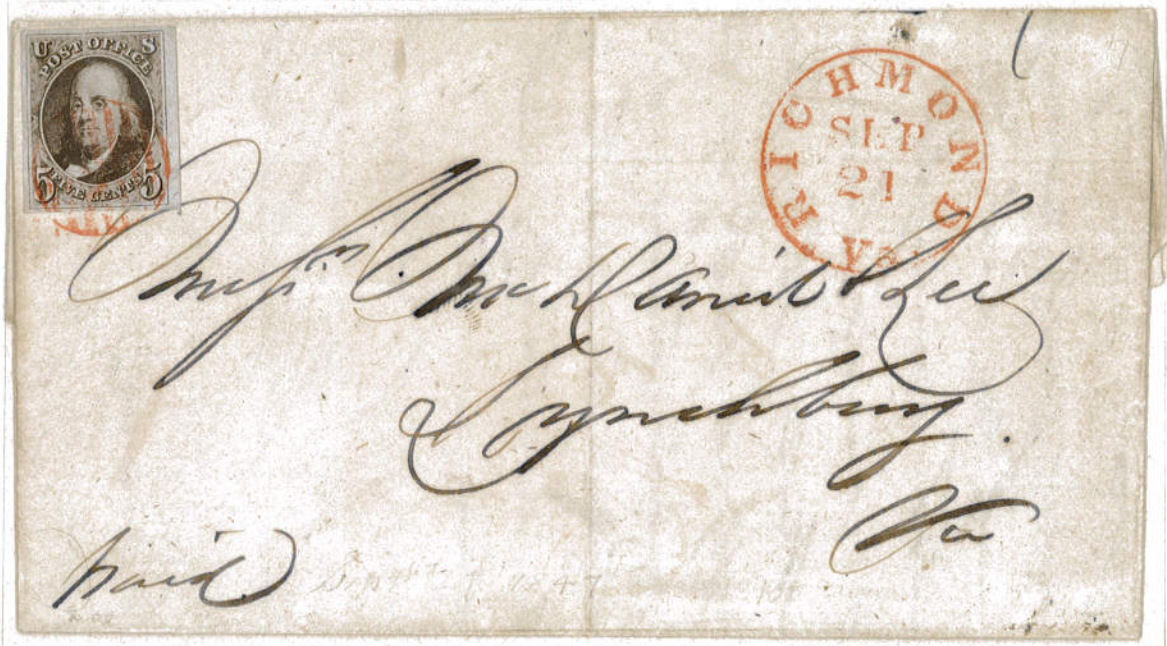 U S
POST OFFICE
5 FIVE CENTS 5
RICHMOND Va.
SEP
21
Messrs McDaniel & Lee
Lynchburg.
Va
paid